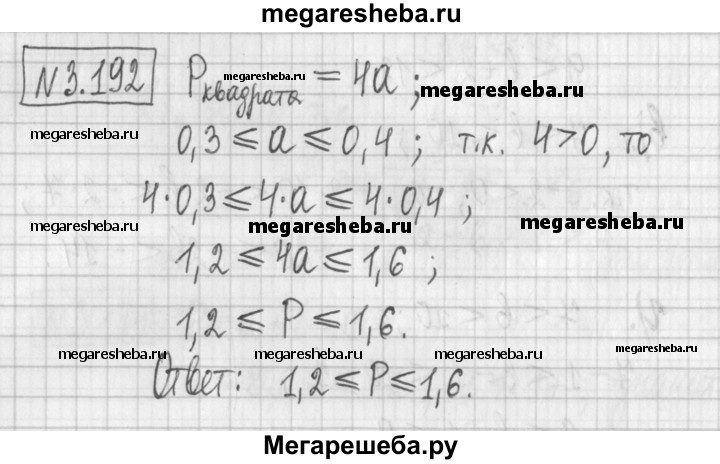 megaresheba.ru
N 3.192 P квадрата = 4a ;
megaresheba.ru megaresheba.ru
megaresheba.ru 0,3 ≤ a ≤ 0,4 ; т.к. 4>0, то
4·0,3 ≤ 4·a ≤ 4·0,4 ;
megaresheba.ru megaresheba.ru megaresheba.ru
1,2 ≤ 4a ≤ 1,6 ;
1,2 ≤ P ≤ 1,6.
megaresheba.ru megaresheba.ru megaresheba.ru megaresheba.ru
Ответ: 1,2 ≤ P ≤ 1,6.
Мегарешеба.ру